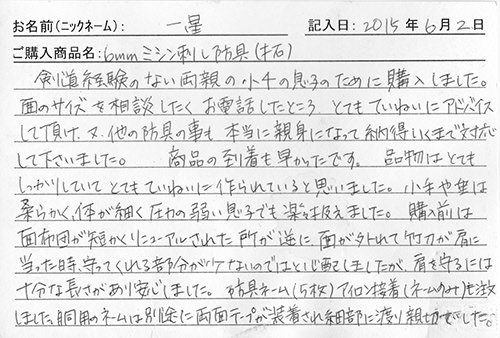 お名前(ニックネーム): 一星 記入日: 2015年6月2日
ご購入商品名: 6mmミシン刺し防具(王石)
剣道経験のない両親の小4の息子のために購入しました。
面のサイズを相談したくお電話したところ とてもていねいにアドバイス
して頂け、又、他の防具の事も 本当に親身になって納得いくまで対応
して下さいました。 商品の到着も早かったです。 品物はとても
しっかりしていてとてもていねいに作られていると思いました。小手や垂は
柔らかく、体が細く圧力の弱い息子でも楽々扱えました。 購入前は
面布団が短かくリニューアルされた所が逆に面が外れて竹刀が肩に
当った時、守ってくれる部分が少ないのではと心配しましたが、肩を守るには
十分な長さがあり安心しました。 防具ネーム(5枚)アイロン接着(ネームのみ)を注文
しました。胴用のネームは別途に両面テープが装着され細部に渡り親切でした。